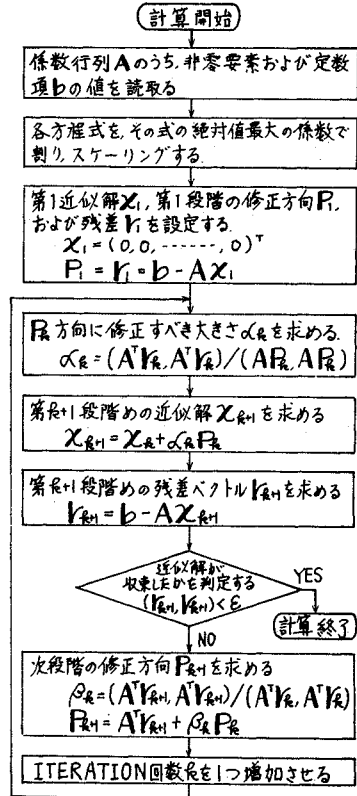 計算開始
係数行列Aのうち,非零要素および定数
項bの値を読取る
各方程式を,その式の絶対値最大の係数で
割り,スケーリングする.
第1近似解x₁,第1段階の修正方向P₁,
および残差r₁を設定する.
x₁=(0,0,------,0)ᵀ
P₁=r₁=b-Ax₁
Pₖ方向に修正すべき大きさαₖを求める.
αₖ=(Aᵀrₖ,Aᵀrₖ)/(APₖ,APₖ)
第k+1段階めの近似解xₖ₊₁を求める
xₖ₊₁=xₖ+αₖPₖ
第k+1段階めの残差ベクトルrₖ₊₁を求める
rₖ₊₁=b-Axₖ₊₁
近似解が
収束したかを判定する
(rₖ₊₁,rₖ₊₁)<ε
YES
計算終了
NO
次段階の修正方向Pₖ₊₁を求める
βₖ=(Aᵀrₖ₊₁,Aᵀrₖ₊₁)/(Aᵀrₖ,Aᵀrₖ)
Pₖ₊₁=Aᵀrₖ₊₁+βₖPₖ
ITERATION回数kを1つ増加させる